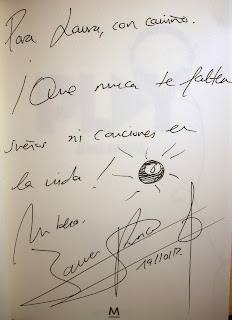 Para Laura, con cariño.
¡Que nunca te falten
sueños ni canciones en
la vida!
Un beso.
19/10/17.
M